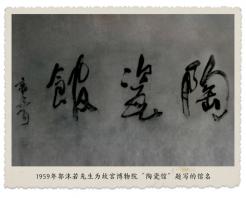 陶瓷館
1959年郭沫若先生为故宫博物院“陶瓷馆”题写的馆名